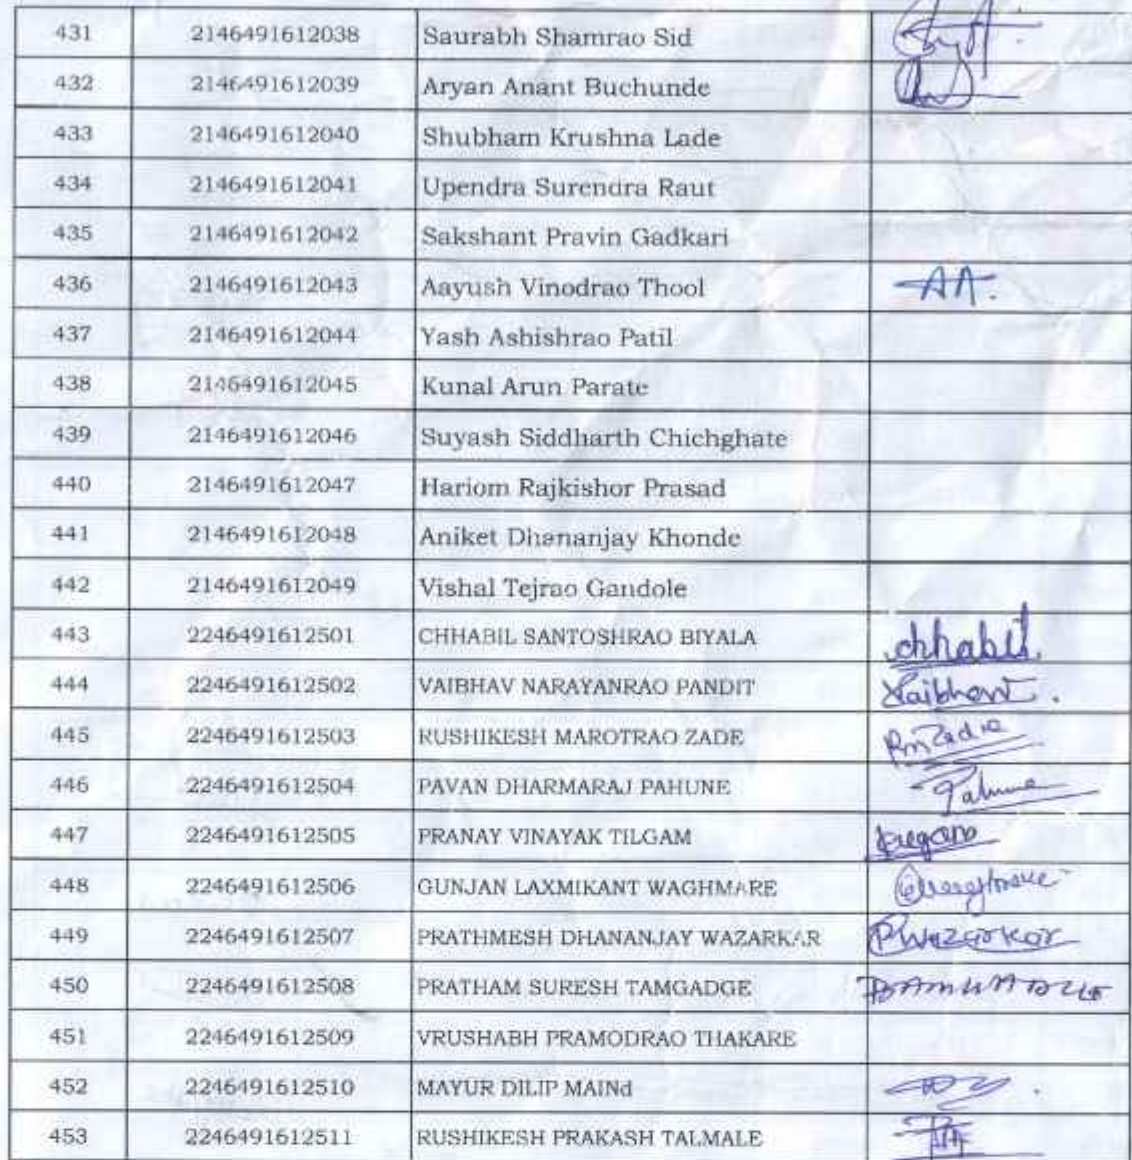 431 2146491612038 Saurabh Shamrao Sid
432 2146491612039 Aryan Anant Buchunde
433 2146491612040 Shubham Krushna Lade
434 2146491612041 Upendra Surendra Raut
435 2146491612042 Sakshant Pravin Gadkari
436 2146491612043 Aayush Vinodrao Thool AA.
437 2146491612044 Yash Ashishrao Patil
438 2146491612045 Kunal Arun Parate
439 2146491612046 Suyash Siddharth Chichghate
440 2146491612047 Hariom Rajkishor Prasad
441 2146491612048 Aniket Dhananjay Khonde
442 2146491612049 Vishal Tejrao Gandole
443 2246491612501 CHHABIL SANTOSHRAO BIYALA chhabil
444 2246491612502 VAIBHAV NARAYANRAO PANDIT Vaibhav.
445 2246491612503 RUSHIKESH MAROTRAO ZADE RmZade
446 2246491612504 PAVAN DHARMARAJ PAHUNE Pahune
447 2246491612505 PRANAY VINAYAK TILGAM
448 2246491612506 GUNJAN LAXMIKANT WAGHMARE
449 2246491612507 PRATHMESH DHANANJAY WAZARKAR PWazarkar
450 2246491612508 PRATHAM SURESH TAMGADGE
451 2246491612509 VRUSHABH PRAMODRAO THAKARE
452 2246491612510 MAYUR DILIP MAINd
453 2246491612511 RUSHIKESH PRAKASH TALMALE